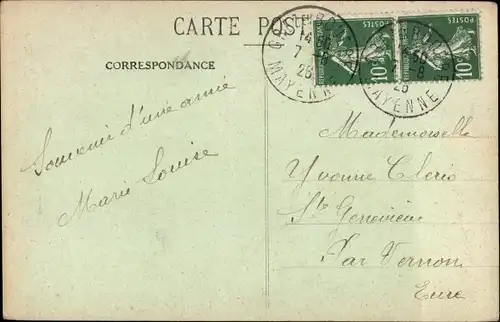 CARTE POS
CORRESPONDANCE
POSTES
10c
POSTES
10c
14
7 - 8
25
MAYENNE
25
MAYENNE
Souvenir d'une amie
Marie Louise
Mademoiselle
Yvonne Cleris
Ste Geneviève
Par Vernon
Eure